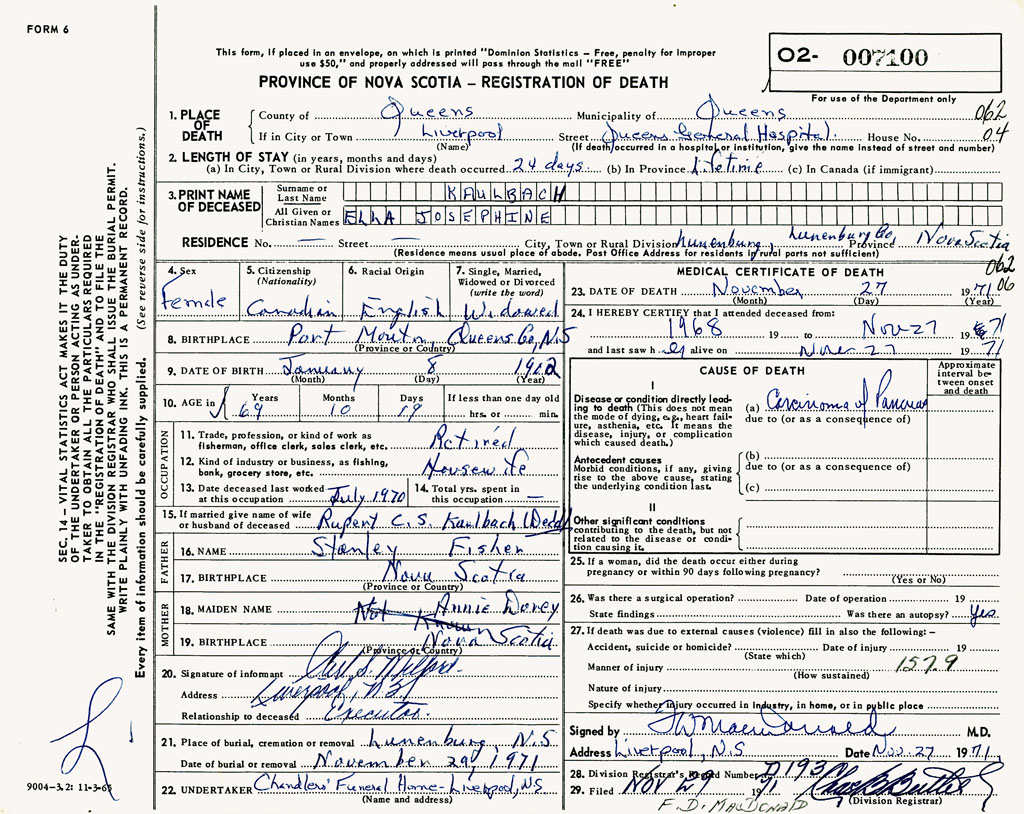 FORM 6
This form, if placed in an envelope, on which is printed "Dominion Statistics – Free, penalty for improper
use $50," and properly addressed will pass through the mail "FREE"
O2- 007100
PROVINCE OF NOVA SCOTIA – REGISTRATION OF DEATH
For use of the Department only
1. PLACE OF DEATH
County of Queens Municipality of Queens 062
If in City or Town Liverpool Street Queens General Hospital. House No. 04
(Name) (If death occurred in a hospital or institution, give the name instead of street and number)
2. LENGTH OF STAY (in years, months and days)
(a) In City, Town or Rural Division where death occurred 24 days. (b) In Province Lifetime (c) In Canada (if immigrant)
3. PRINT NAME OF DECEASED
Surname or Last Name KAULBACH
All Given or Christian Names ELLA JOSEPHINE
RESIDENCE No. — Street — City, Town or Rural Division Lunenburg, Lunenburg Co, Province Nova Scotia
(Residence means usual place of abode. Post Office Address for residents of rural parts not sufficient)
062
06
4. Sex Female
5. Citizenship (Nationality) Canadian
6. Racial Origin English
7. Single, Married, Widowed or Divorced (write the word) Widowed
8. BIRTHPLACE Port Mouton, Queens Co, N.S
(Province or Country)
9. DATE OF BIRTH January 8 1902
(Month) (Day) (Year)
10. AGE in Years 69 Months 10 Days 19 If less than one day old hrs. or min.
OCCUPATION
11. Trade, profession, or kind of work as fisherman, office clerk, sales clerk, etc. Retired
12. Kind of industry or business, as fishing, bank, grocery store, etc. Housewife
13. Date deceased last worked at this occupation July 1970
14. Total yrs. spent in this occupation —
15. If married give name of wife or husband of deceased Rupert C.S. Kaulbach (Decd)
FATHER
16. NAME Stanley Fisher
17. BIRTHPLACE Nova Scotia
(Province or Country)
MOTHER
18. MAIDEN NAME Not Known Annie Dorey
19. BIRTHPLACE Nova Scotia.
(Province or Country)
20. Signature of informant
Address Liverpool, N.S.
Relationship to deceased Executor.
21. Place of burial, cremation or removal Lunenburg, N.S
Date of burial or removal November 29, 1971
22. UNDERTAKER Chandlers' Funeral Home - Liverpool, N.S
(Name and address)
MEDICAL CERTIFICATE OF DEATH
23. DATE OF DEATH November 27 1971
(Month) (Day) (Year)
24. I HEREBY CERTIFY that I attended deceased from:
1968 19 to Nov 27 1971
and last saw her alive on Nov 27 1971
CAUSE OF DEATH
Approximate interval between onset and death
I
Disease or condition directly leading to death (This does not mean the mode of dying, e.g., heart failure, asthenia, etc. It means the disease, injury, or complication which caused death.)
(a) Carcinoma of Pancreas
due to (or as a consequence of)
Antecedent causes
Morbid conditions, if any, giving rise to the above cause, stating the underlying condition last.
(b)
due to (or as a consequence of)
(c)
II
Other significant conditions
contributing to the death, but not related to the disease or condition causing it.
25. If a woman, did the death occur either during pregnancy or within 90 days following pregnancy?
(Yes or No)
26. Was there a surgical operation? Date of operation 19
State findings Was there an autopsy? Yes.
27. If death was due to external causes (violence) fill in also the following: –
Accident, suicide or homicide? Date of injury 19
(State which)
Manner of injury 157.9
(How sustained)
Nature of injury
Specify whether injury occurred in industry, in home, or in public place
Signed by M.D.
Address Liverpool, N.S Date Nov. 27 1971.
28. Division Registrar's Record Number
29. Filed NOV 29 1971
(Division Registrar)
F. D. MACDONALD
SEC. 14 – VITAL STATISTICS ACT MAKES IT THE DUTY
OF THE UNDERTAKER OR PERSON ACTING AS UNDER-
TAKER TO OBTAIN ALL THE PARTICULARS REQUIRED
IN THE "REGISTRATION OF DEATH" AND TO FILE THE
SAME WITH THE DIVISION REGISTRAR WHO SHALL ISSUE THE BURIAL PERMIT.
WRITE PLAINLY WITH UNFADING INK. THIS IS A PERMANENT RECORD.
Every item of information should be carefully supplied. (See reverse side for instructions.)
9004-3.2: 11-3-65